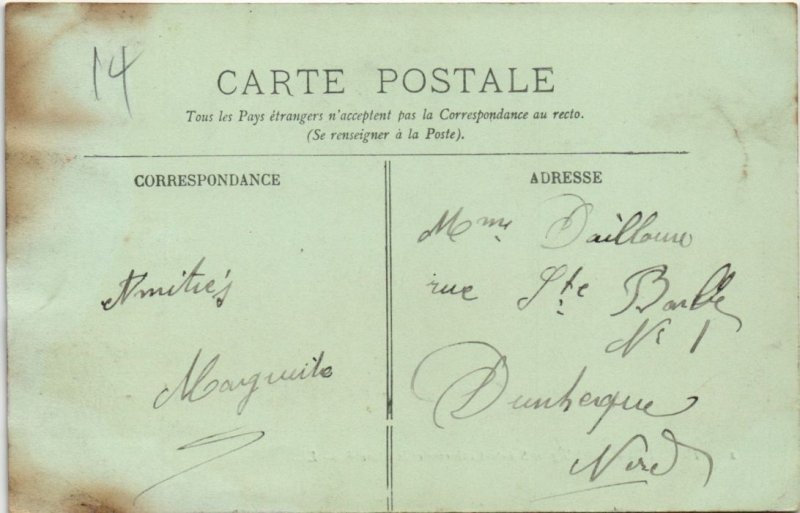 14
CARTE POSTALE
Tous les Pays étrangers n'acceptent pas la Correspondance au recto.
(Se renseigner à la Poste).
CORRESPONDANCE
Amitiés
Marguerite
ADRESSE
Mme
rue Ste Barbe
No 1
Dunkerque
Nord